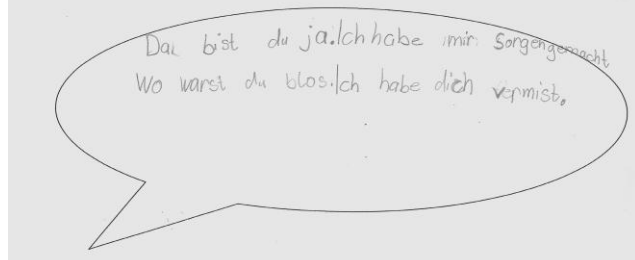 Da bist du ja.Ich habe mir Sorgen gemacht
Wo warst du blos.Ich habe dich vermist.